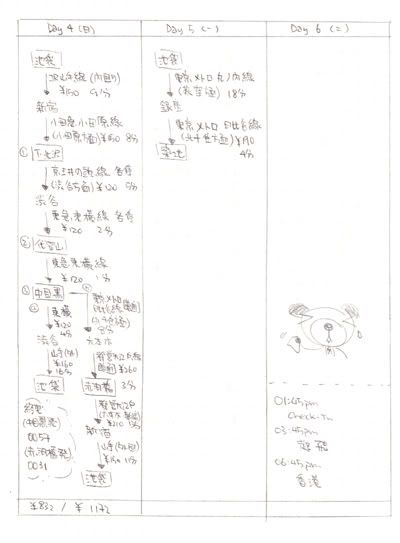 Day 4 (日)
池袋
JR山手線 (內回り)
¥150 9分
新宿
小田急小田原線
¥150 8分
① 下北沢
京王井の頭線 各停
(渋谷方面) ¥120 5分
渋谷
東急東横線 各停
¥120 2分
② 代官山
東急東横線
¥120 1分
③ 中目黒
東横
¥120
4分
渋谷
山手(外)
¥160
16分
池袋
東京メトロ
日比谷線
六本木
都営大江戸線
赤羽橋 3分
新宿
¥150 11分
池袋
終電
0054
(赤羽橋発)
0031
¥832 / ¥ 1172
Day 5 (一)
池袋
東京メトロ丸ノ内線
(荻窪極) 18分
銀座
東京メトロ日比谷線
¥190
4分
築地
Day 6 (二)
01:45pm
Check-In
03:45pm
起飛
06:45pm
香港